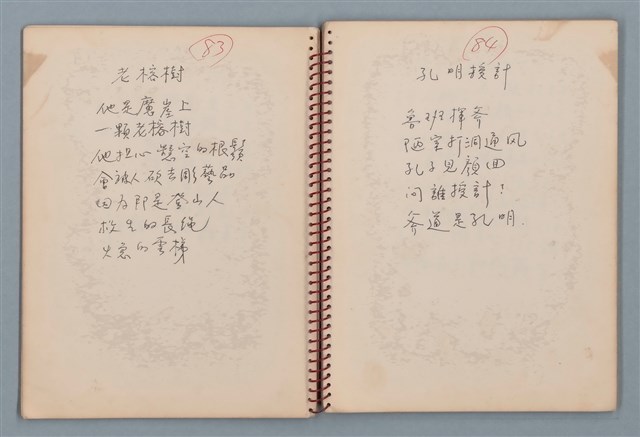 83
老榕樹
他是魔崖上
一顆老榕樹
他担心懸空的根鬚
會被人砍去彫藝品
因為那是登山人
救生的長繩
火急的雲梯
84
孔明授計
魯班揮斧
陋室打洞通风
孔子見顏回
问誰授計！
答道是孔明.